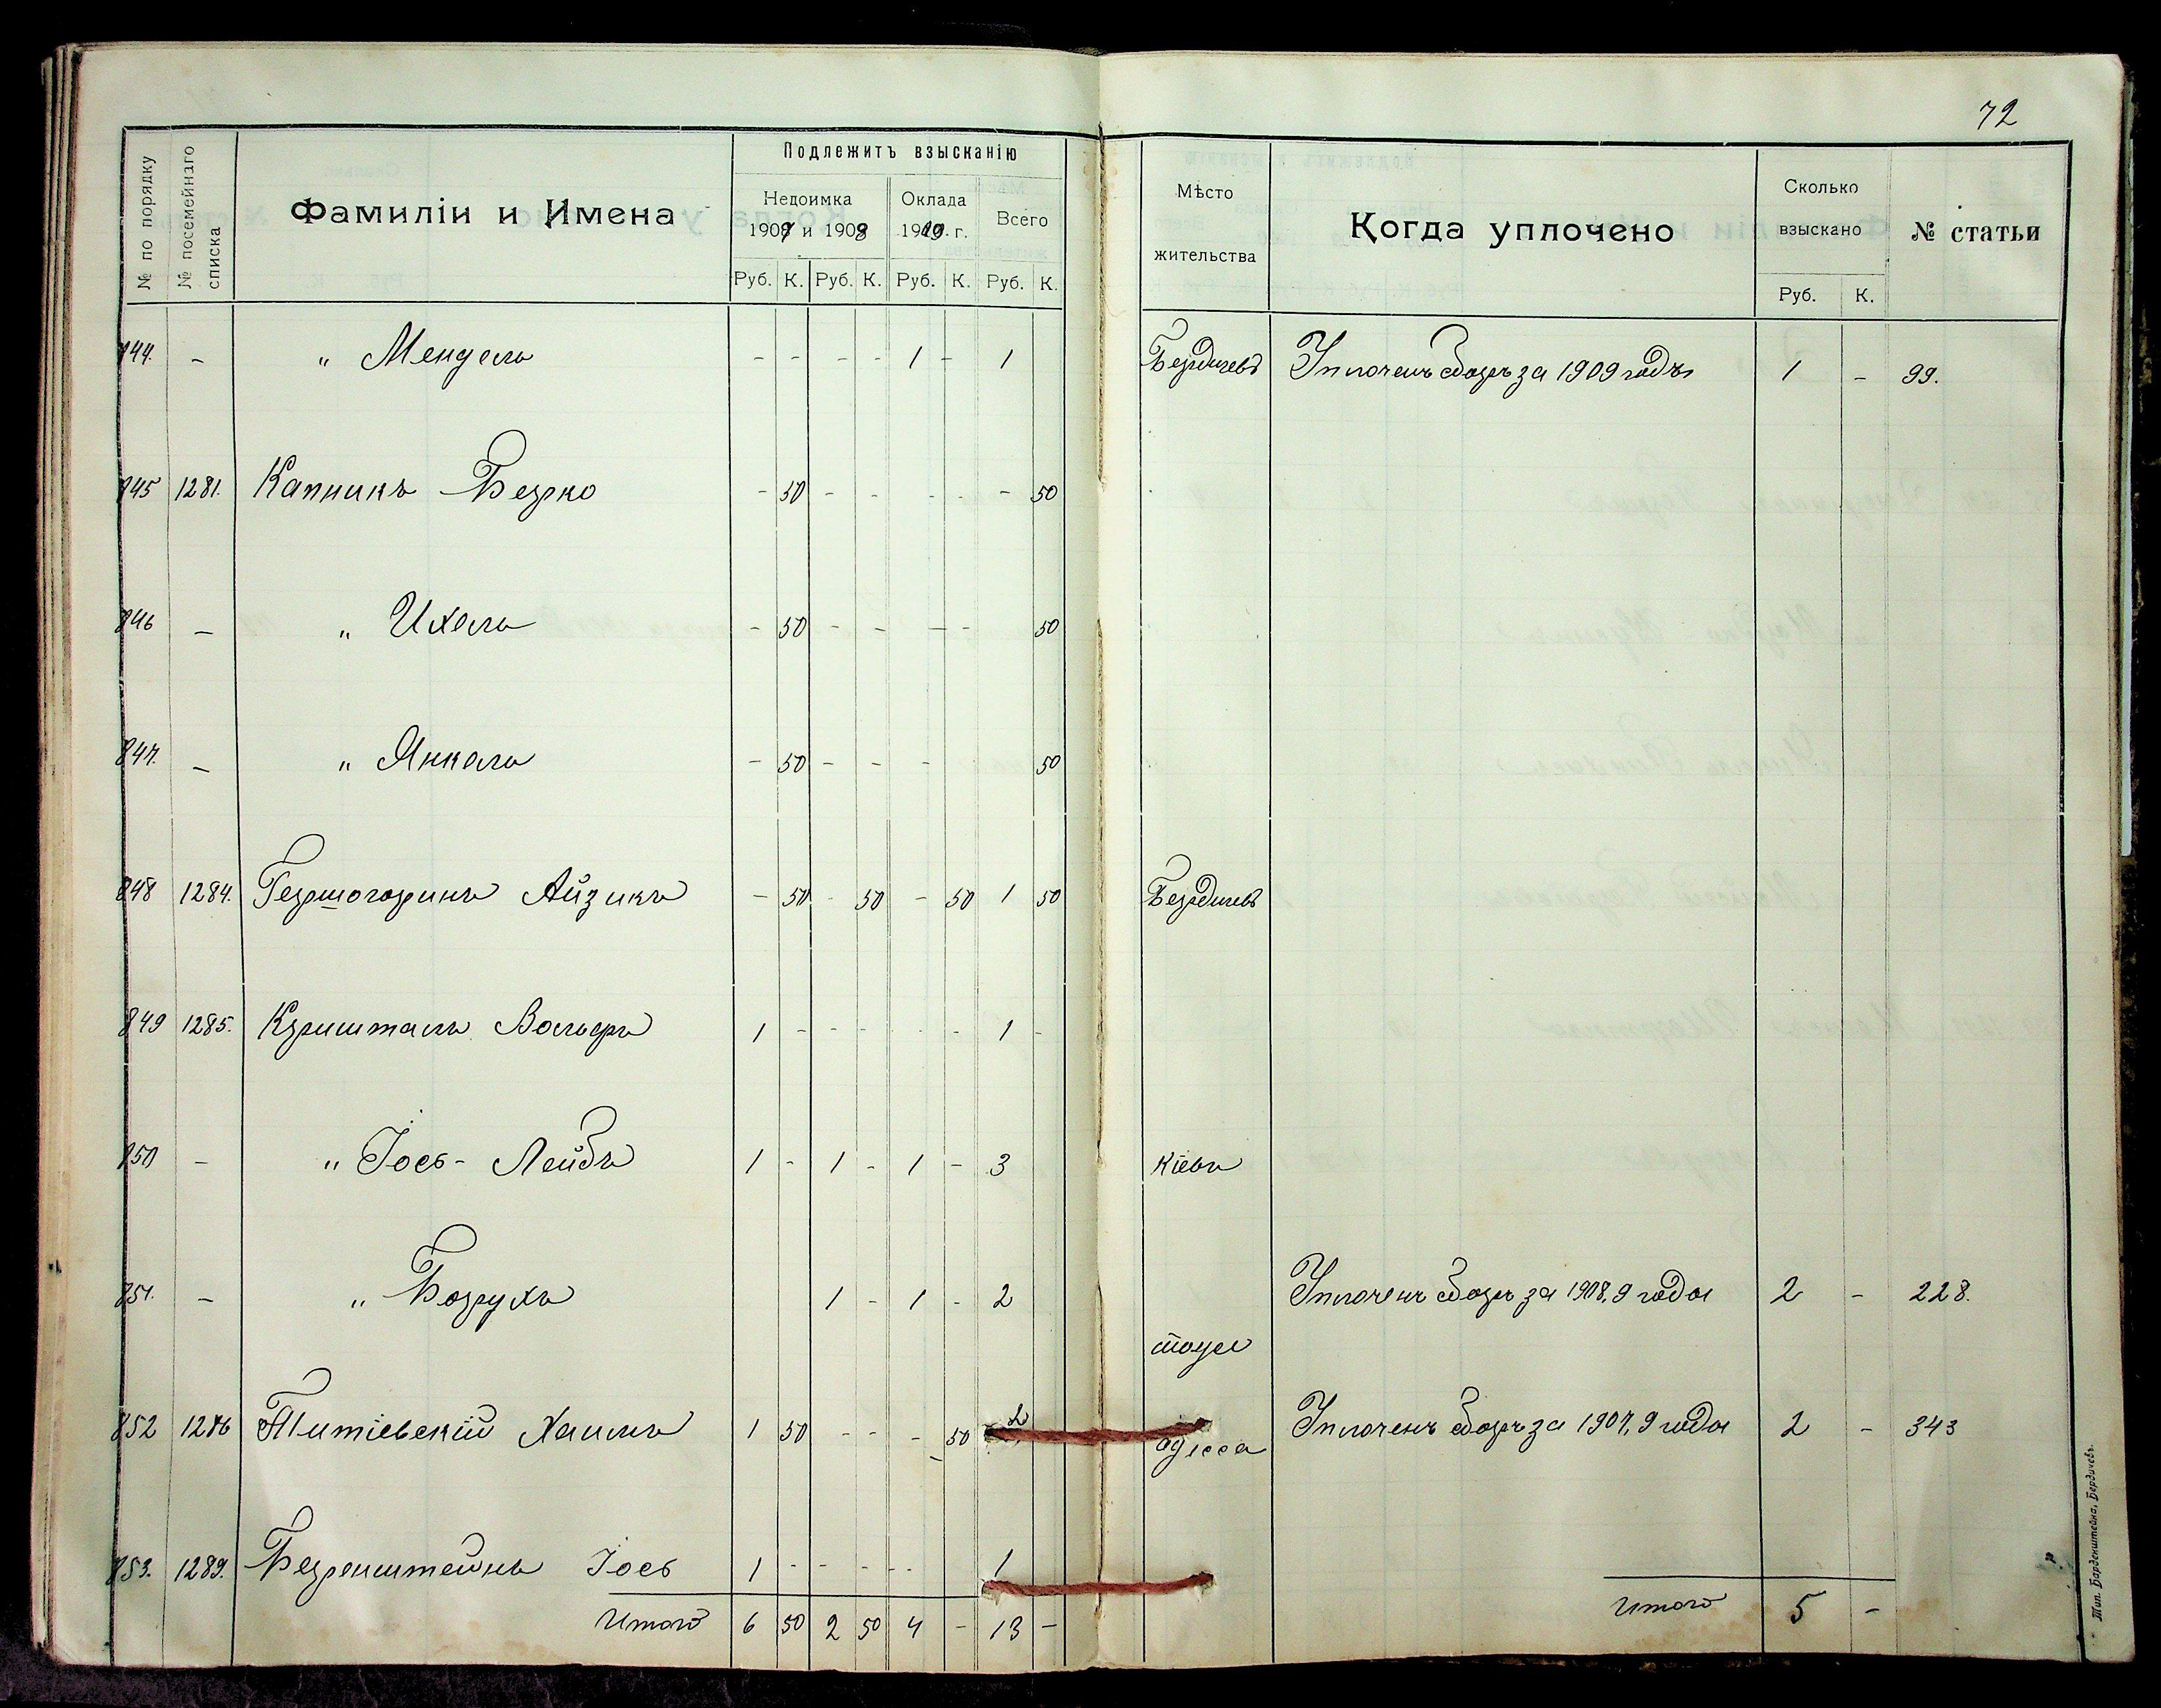 72
№ по порядку
№ посемейнаго списка
Фамиліи и Имена
Подлежитъ взысканію
Недоимка
1907 и 1908
Оклада
1909 г.
Всего
Руб. К. Руб. К. Руб. К. Руб. К.
Мѣсто
жительства
Когда уплочено
Сколько
взыскано
Руб. К.
№ статьи
844. – " Мендель – – – – 1 – 1 Бердичевъ Уплоченъ сборъ за 1909 годъ 1 – 99.
845 1281. Капникъ Берко – 50 – – – – – 50
846 – " Ихель – 50 – – – – 50
847. – " Янкель – 50 – – – 50
848 1284. Гершогоринъ Айзикъ – 50 – 50 – 50 1 50 Бердичевъ
849 1285. Кришталь Вольфъ 1 – – – – – 1 –
850 – " Іось - Лейбъ 1 – 1 – 1 – 3 Кіевъ
851. – " Борухъ 1 – 1 – 2 Уплоченъ сборъ за 1908,9 годы 2 – 228.
852 1286 Титіевскій Хаимъ 1 50 – – – 50 2 Одесса Уплоченъ сборъ за 1907,9 годы 2 – 343
853. 1289. Беренштейнъ Іось 1 – – – – 1
Итого 6 50 2 50 4 – 13 –
Итого 5 –
Тип. Барденштейна, Бердичевъ.